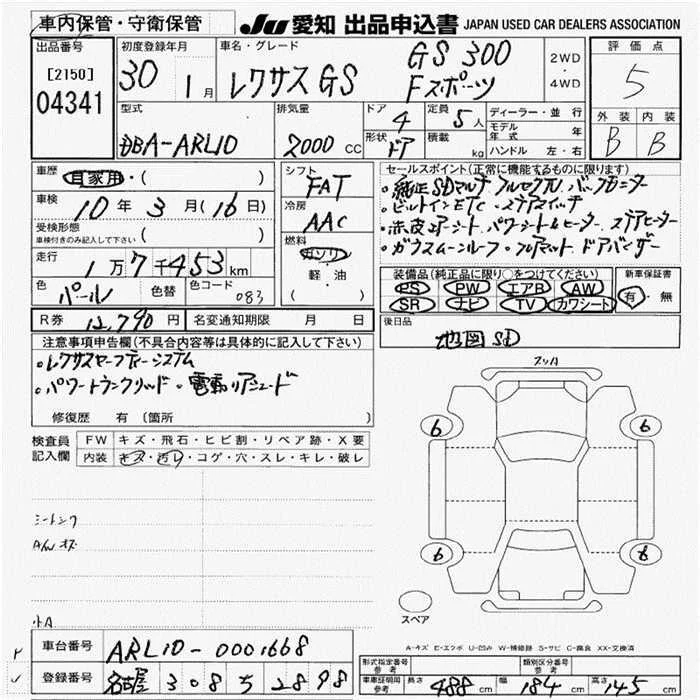 車内保管・守衛保管 JU 愛知 出品申込書 JAPAN USED CAR DEALERS ASSOCIATION
出品番号 初度登録年月 車名・グレード 2WD ・ 4WD 評価点
[2150] 30 1月 レクサス GS GS 300 5
04341 Fスポーツ
型式 排気量 ドア 4 定員 5人 ディーラー・並行 外装 内装
DBA-ARL10 2000 CC 形状 ドア 積載 kg モデル年式 年 B B
ハンドル 左・右
車歴 自家用・( ) シフト FAT セールスポイント(正常に機能するものに限ります)
車検 10年3月(16日) 冷房 AAC ・純正SDマルチ フルセグTV バックモニター
・ビルトインETC ・ステアスイッチ
受検形態 車検付きのみ記入して下さい ( ) ・赤皮エアーシート パワーシート&ヒーター ステアヒーター
燃料 ガソリン ・ガラスムーンルーフ ・フロアマット ドアバイザー
走行 1万7千453km 軽・油 ( ) 装備品(純正品に限り○をつけてください) 新車保証書
色 パール 色替 色コード 083 PS PW エアB AW 有・無
SR ナビ TV カワシート
R券 12,790円 名変通知期限 月 日 後日品
地図SD
注意事項申告欄(不具合内容等は具体的に記入して下さい)
・レクサスセーフティーシステム
・パワートランクリッド ・電動リアシェード
修復歴 有(箇所 )
検査員記入欄 FW キズ・飛石・ヒビ割・リペア跡・X要
内装 キズ・汚レ・コゲ・穴・スレ・キレ・破レ
6 6
A/W キズ
6 6
小A
スペア
A-キズ E-エクボ U-凹み W-補修跡 S-サビ C-腐食 XX-交換済
車台番号 ARL10-0001668 形式指定番号 参考 類別区分番号 参考
登録番号 名古屋 308 ち 2898 車庫証明用 参考 長さ 488cm 幅 184cm 高さ 145cm